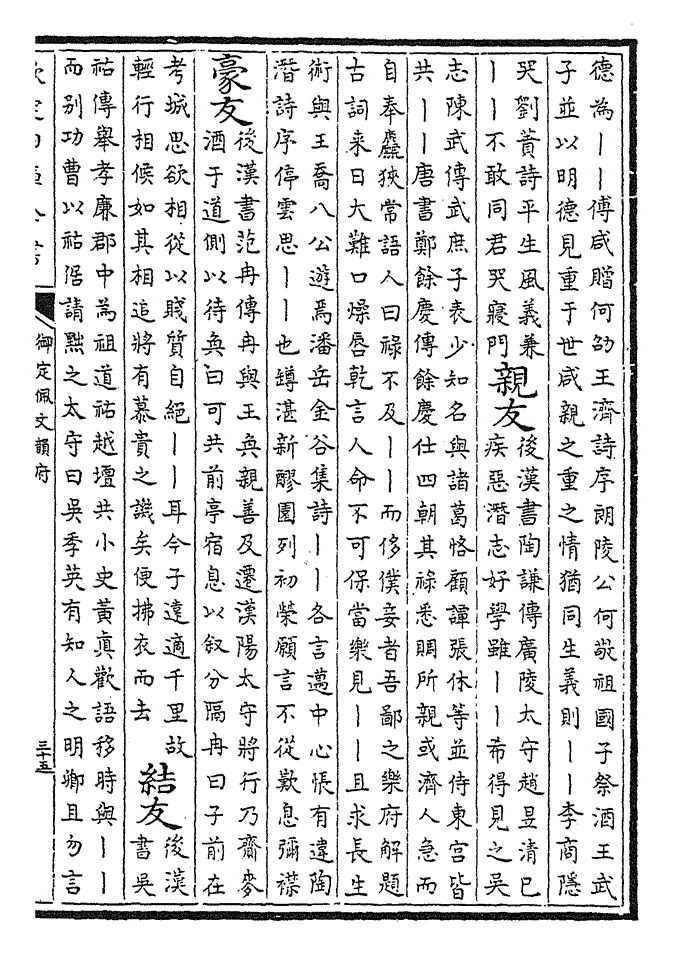 德為丨丨傅咸贈何劭王濟詩序朗陵公何敬祖國子祭酒王武
子並以明德見重于世咸親之重之情猶同生義則丨丨李商隱
哭劉蕡詩平生風義兼
丨丨不敢同君哭寢門
親友
後漢書陶謙傳廣陵太守趙昱清已
疾惡潛志好學雖丨丨希得見之吳
志陳武傳武庶子表少知名與諸葛恪顧譚張休等並侍東宮皆
共丨丨唐書鄭餘慶傳餘慶仕四朝其祿悉賙所親或濟人急而
自奉麤狹常語人曰祿不及丨丨而侈僕妾者吾鄙之樂府解題
古詞来日大難口燥唇乾言人命不可保當樂見丨丨且求長生
術與王喬八公遊焉潘岳金谷集詩丨丨各言邁中心悵有違陶
潛詩序停雲思丨丨也罇湛新醪園列初榮願言不從歎息彌襟
豪友
後漢書范冉傳冉與王奐親善及遷漢陽太守將行乃齎麥
酒于道側以待奐曰可共前亭宿息以叙分隔冉曰子前在
考城思欲相從以賤質自絕丨丨耳今子遠適千里故
輕行相候如其相追將有慕貴之譏矣便拂衣而去
結友
後漢
書吳
祐傳舉孝廉郡中為祖道祐越壇共小史黃真歡語移時與丨丨
而别功曹以祐倨請黜之太守曰吳季英有知人之明卿且勿言
御定佩文韻府
三十五